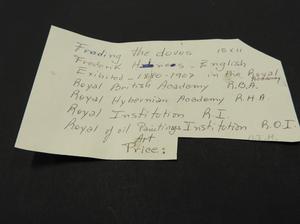 Feading the doves 15 x 11
Frederik - English
Exhibited - 1880 - 1907 in the Royal Academy
Royal British Academy R.B.A.
Royal Hybernian Academy R.H.A
Royal Institution R.I.
Royal of oil Paintings Institution R.O.I.
Art
Price: